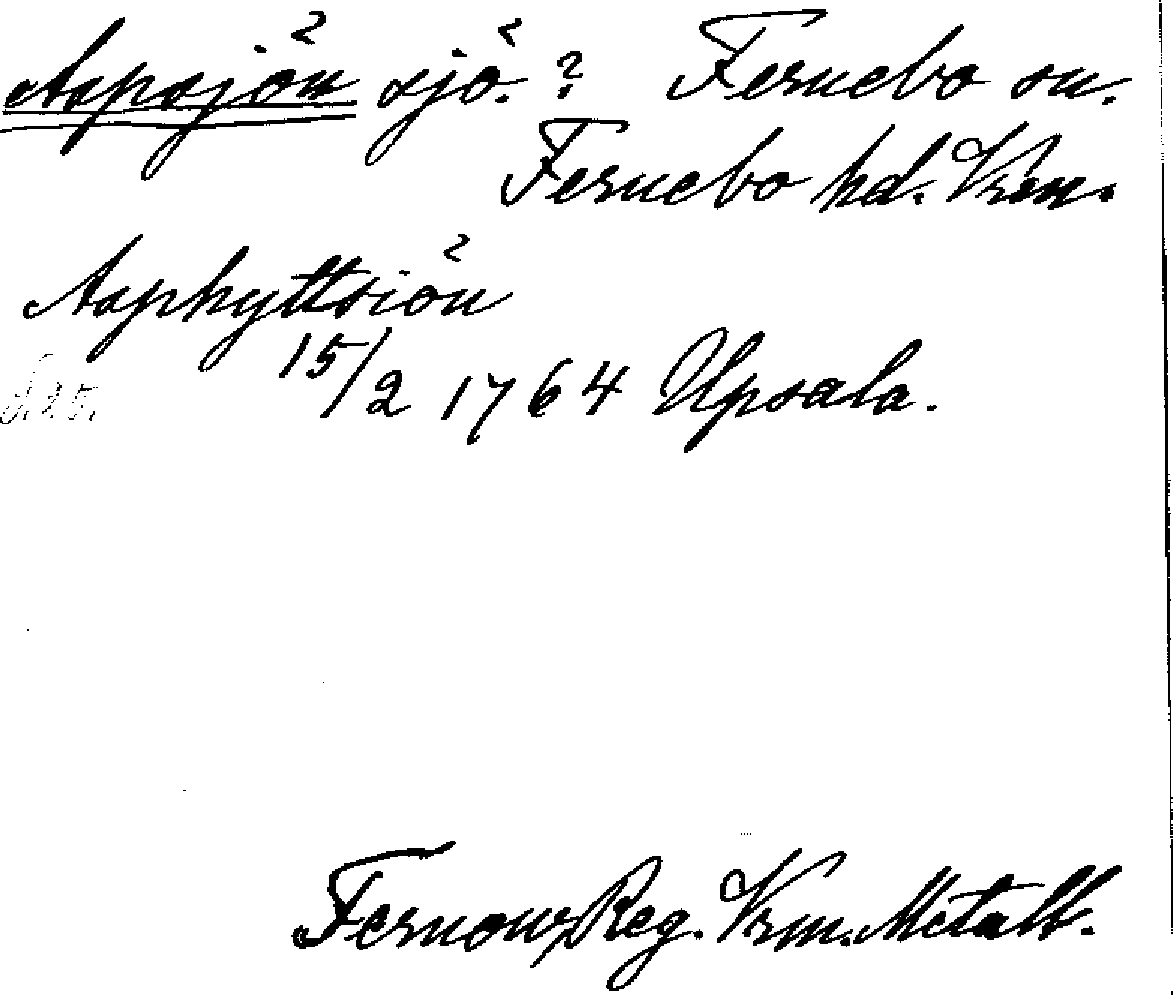 Aspsjön sjö. ? Fernebo sn.
Fernebo hd. Vrm.
Asphyttsiön
15/2 1764 Upsala.
S. 25.
Fernow, Reg. Vrm. Metall.